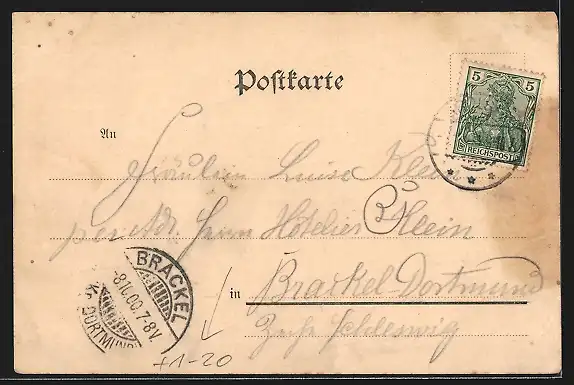 Postkarte
5 5
REICHSPOST
An
Fräulein Luise Klein
per Adr. Herrn Hotelier Klein
BRACKEL
7-8V.
(KR. DORTMUND)
in Brackel Dortmund
Schleswig
+1-20